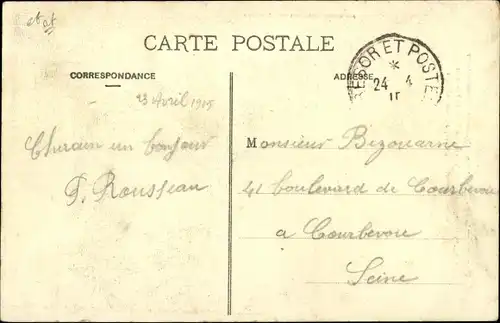 CARTE POSTALE
CORRESPONDANCE
ADRESSE
TRESOR ET POSTES
*
24 4
15
23 Avril 1915
un bonjour
Rousseau
Monsieur Bizouarne
41 boulevard de Courbevoie
a Courbevoie
Seine